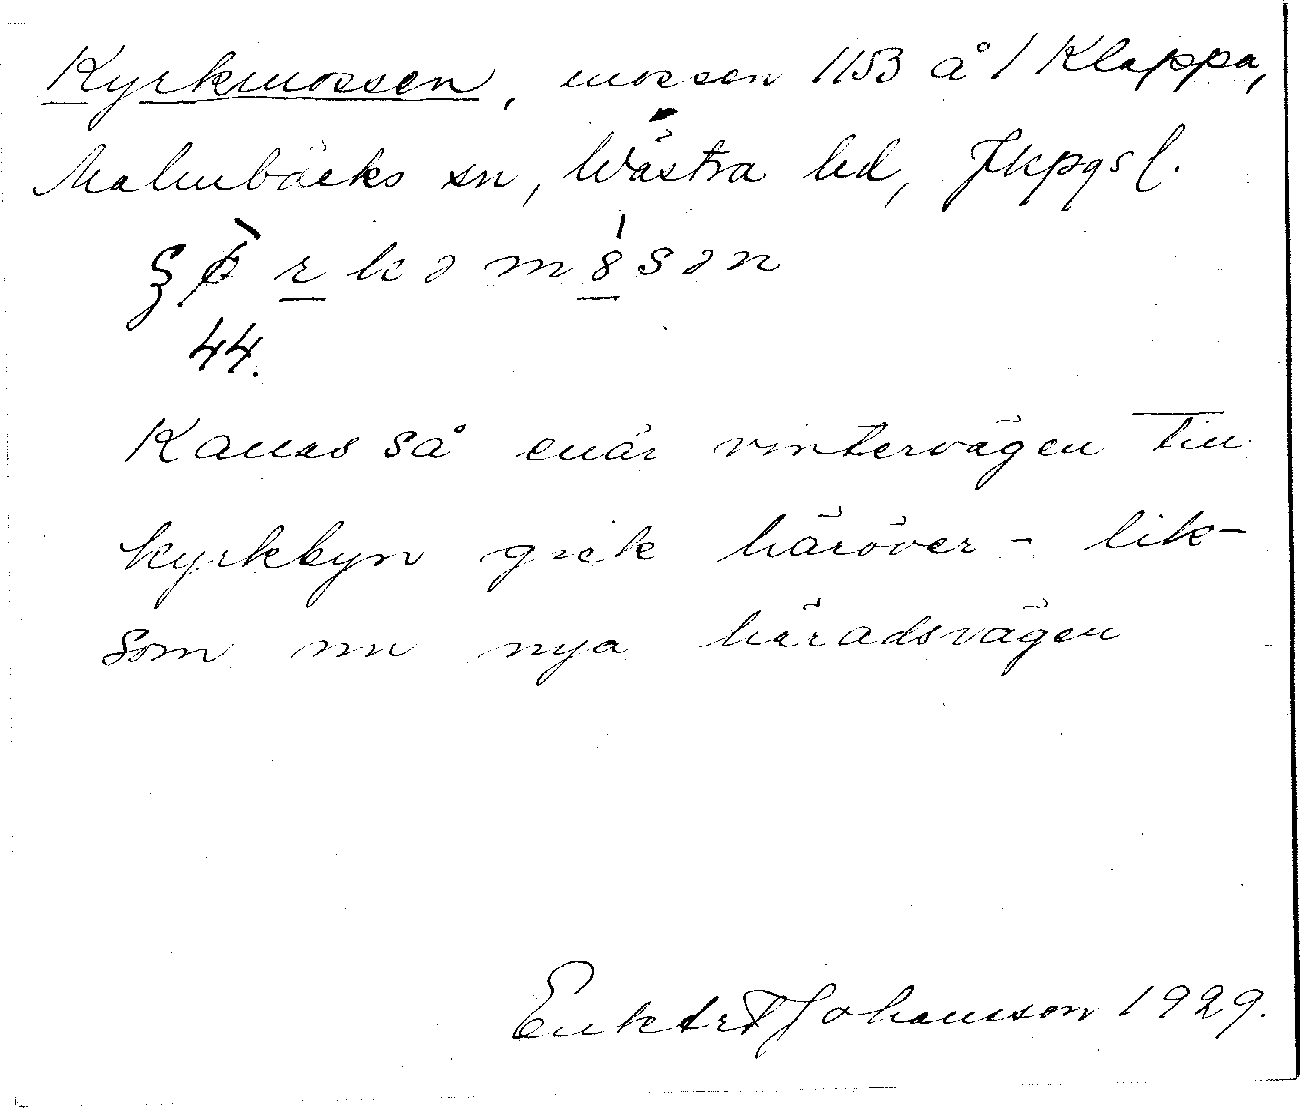 Kyrkmossen, mossen 1153 å 1 Klappa,
Malmbäcks sn, Västra hd, Jkpgs l.
44.
Kallas så enär vintervägen till
kyrkbyn gick häröver - lik-
som nu nya häradsvägen
Johansson 1929.